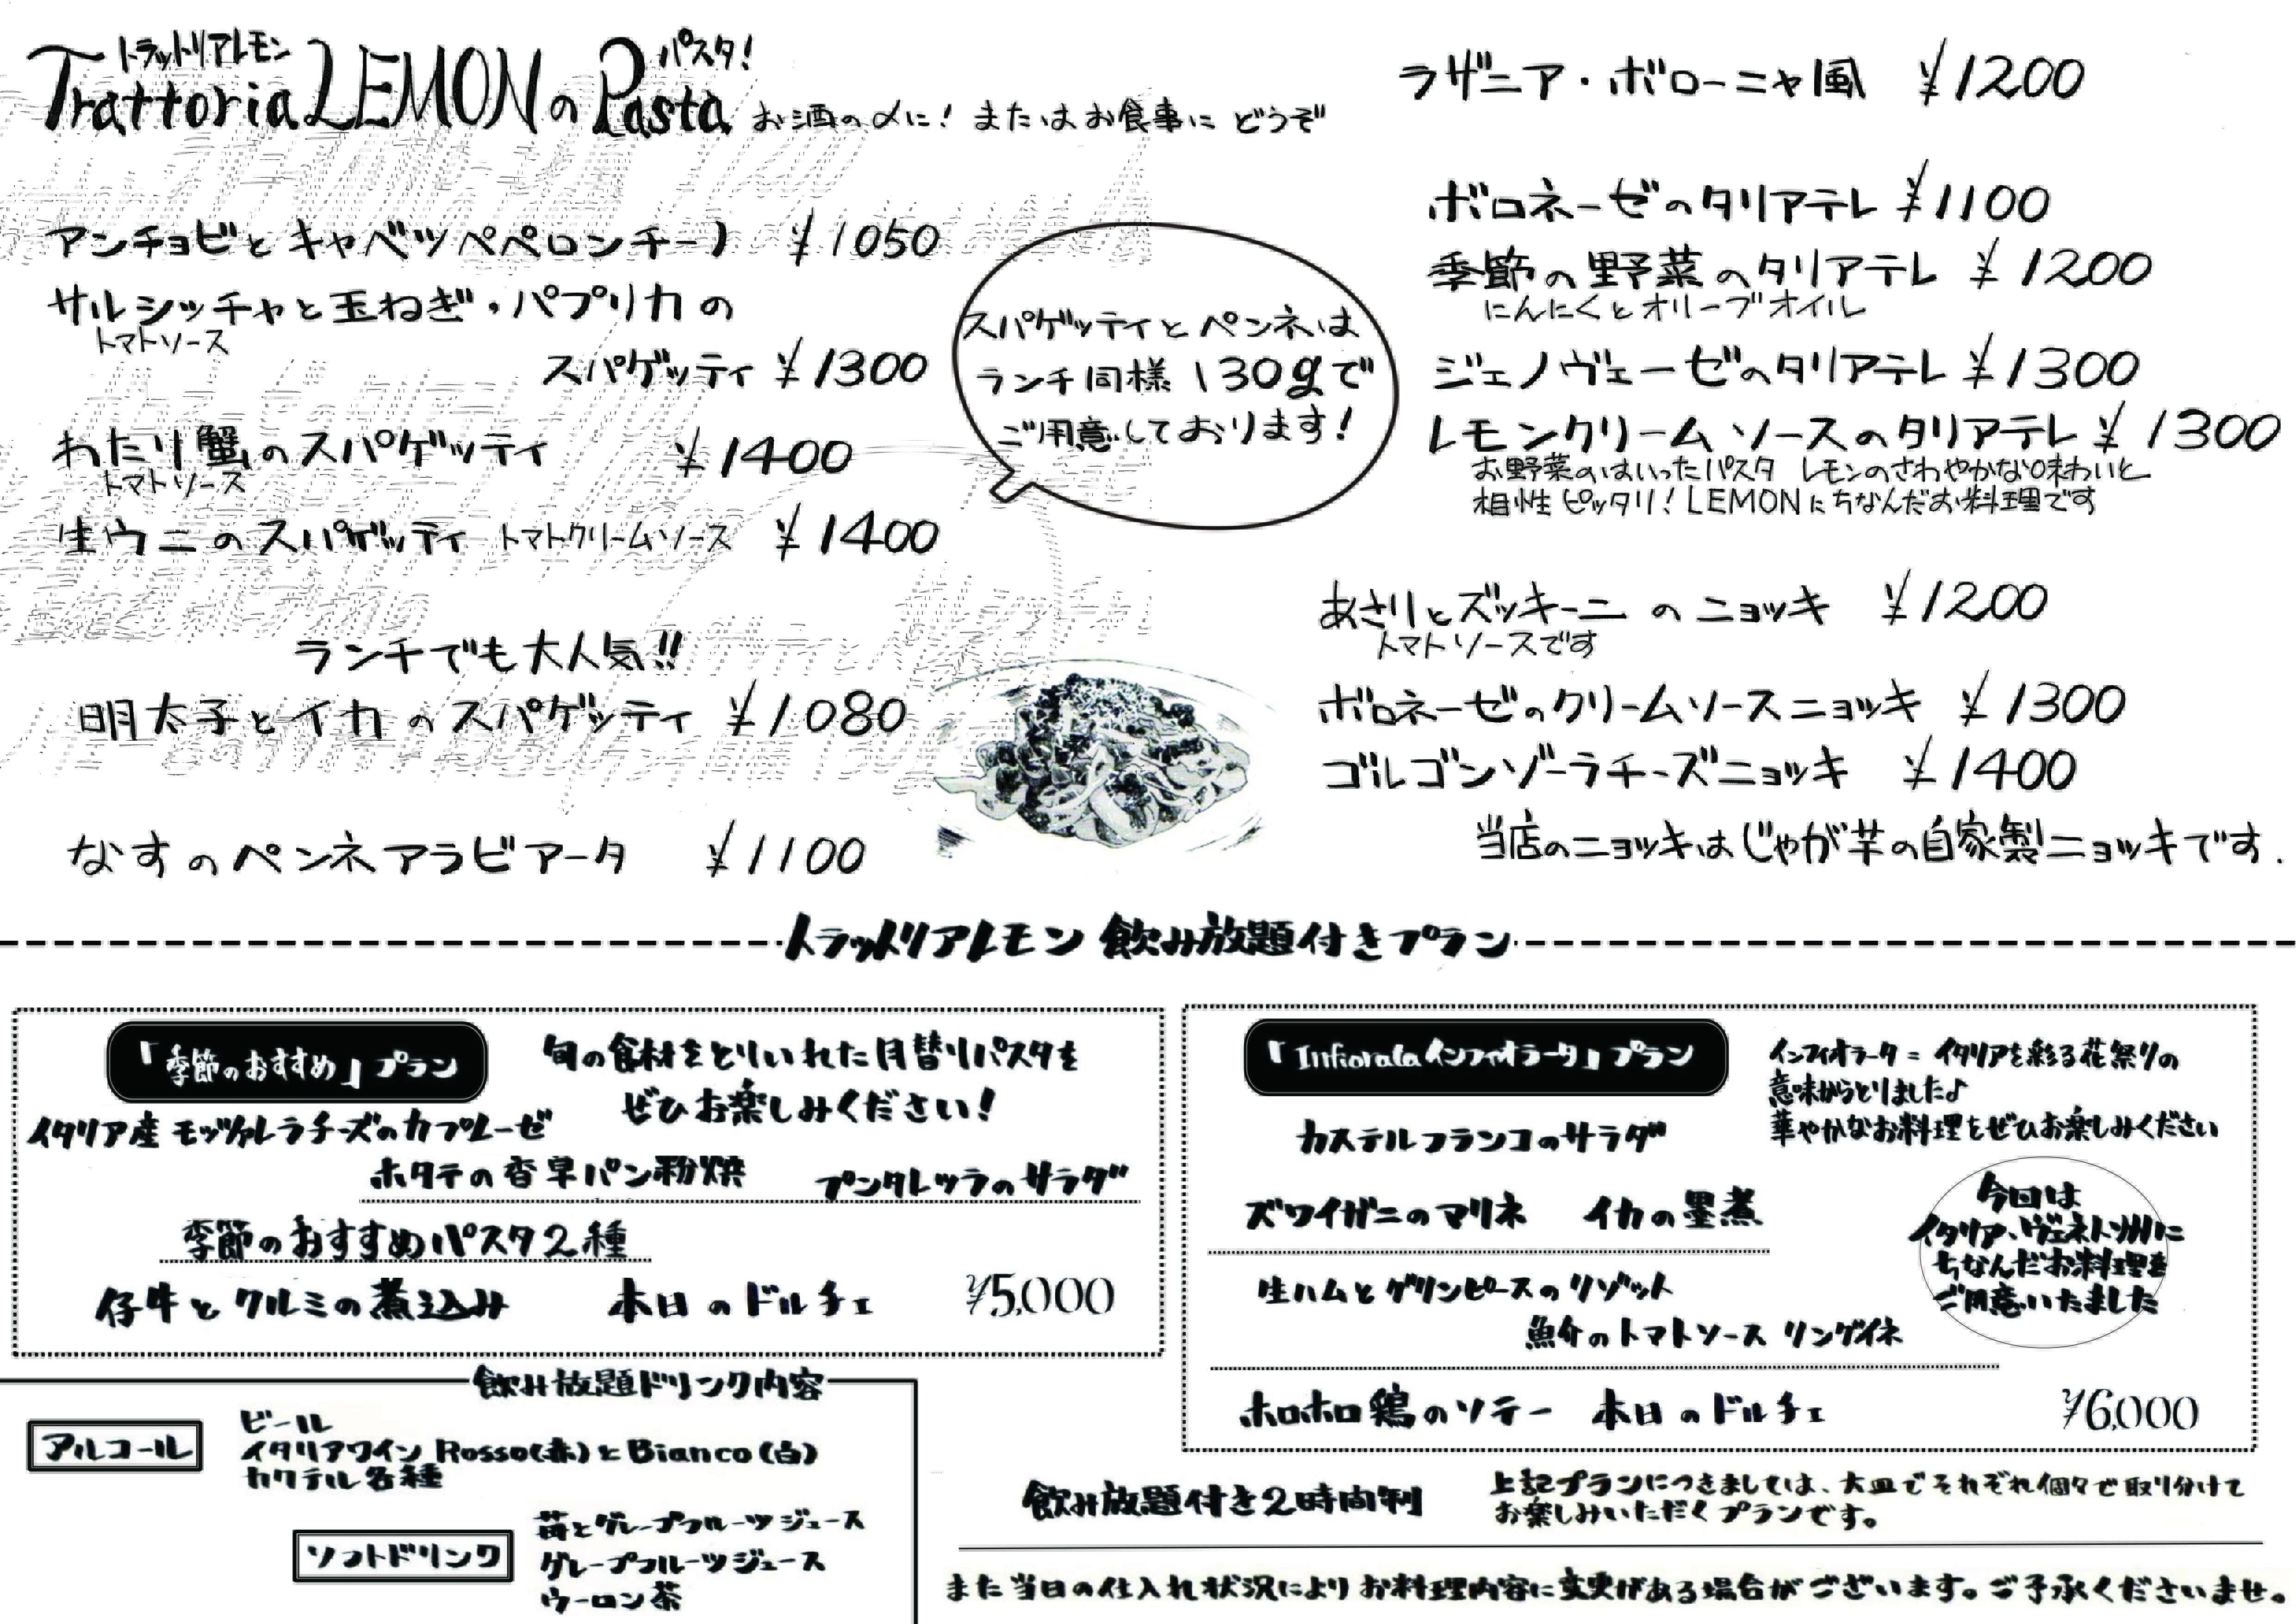 トラットリアレモン パスタ!
Trattoria LEMONのPasta お酒の〆に! またはお食事に どうぞ
アンチョビとキャベツペペロンチーノ ¥1050
サルシッチャと玉ねぎ・パプリカの
トマトソース
スパゲッティ ¥1300
わたり蟹のスパゲッティ ¥1400
トマトソース
生ウニのスパゲッティ トマトクリームソース ¥1400
ランチでも大人気!!
明太子とイカのスパゲッティ ¥1080
なすのペンネアラビアータ ¥1100
スパゲッティとペンネは
ランチ同様130gで
ご用意しております!
ラザニア・ボローニャ風 ¥1200
ボロネーゼのタリアテレ ¥1100
季節の野菜のタリアテレ ¥1200
にんにくとオリーブオイル
ジェノヴェーゼのタリアテレ ¥1300
レモンクリームソースのタリアテレ ¥1300
お野菜のはいったパスタ レモンのさわやかな味わいと
相性ピッタリ! LEMONにちなんだお料理です
あさりとズッキーニのニョッキ ¥1200
トマトソースです
ボロネーゼのクリームソースニョッキ ¥1300
ゴルゴンゾーラチーズニョッキ ¥1400
当店のニョッキはじゃが芋の自家製ニョッキです.
トラットリアレモン 飲み放題付きプラン
「季節のおすすめ」プラン
旬の食材をとりいれた月替りパスタを
ぜひお楽しみください!
イタリア産 モッツァレラチーズのカプレーゼ
ホタテの香草パン粉焼 プンタレッラのサラダ
季節のおすすめパスタ2種
仔牛とクルミの煮込み 本日のドルチェ ¥5,000
「Infiorataインフィオラータ」プラン
インフィオラータ=イタリアを彩る花祭りの
意味からとりました♪
華やかなお料理をぜひお楽しみください
カステルフランコのサラダ
ズワイガニのマリネ イカの墨煮
生ハムとグリンピースのリゾット
魚介のトマトソース リングイネ
ホロホロ鶏のソテー 本日のドルチェ ¥6,000
今回は
イタリア、ヴェネト州に
ちなんだお料理を
ご用意いたました
飲み放題ドリンク内容
アルコール
ビール
イタリアワイン Rosso(赤)とBianco(白)
カクテル各種
ソフトドリンク
苺とグレープフルーツジュース
グレープフルーツジュース
ウーロン茶
飲み放題付き2時間制
上記プランにつきましては、大皿でそれぞれ個々で取り分けて
お楽しみいただくプランです。
また当日の仕入れ状況によりお料理内容に変更がある場合がございます。ご了承くださいませ。